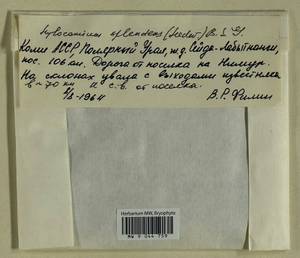 Hylocomium splendens (Hedw.) B. S. G.
Коми АССР, Полярный Урал, ж.д. Сейда-Лабытнанги,
пос. 106 км. Дорога от поселка на
На склонах увала с выходами известняка
в ~ 70 км с.в. от поселка.
1964 В.Р. Филин
Herbarium MW, Bryophyta
MW 9 044 759